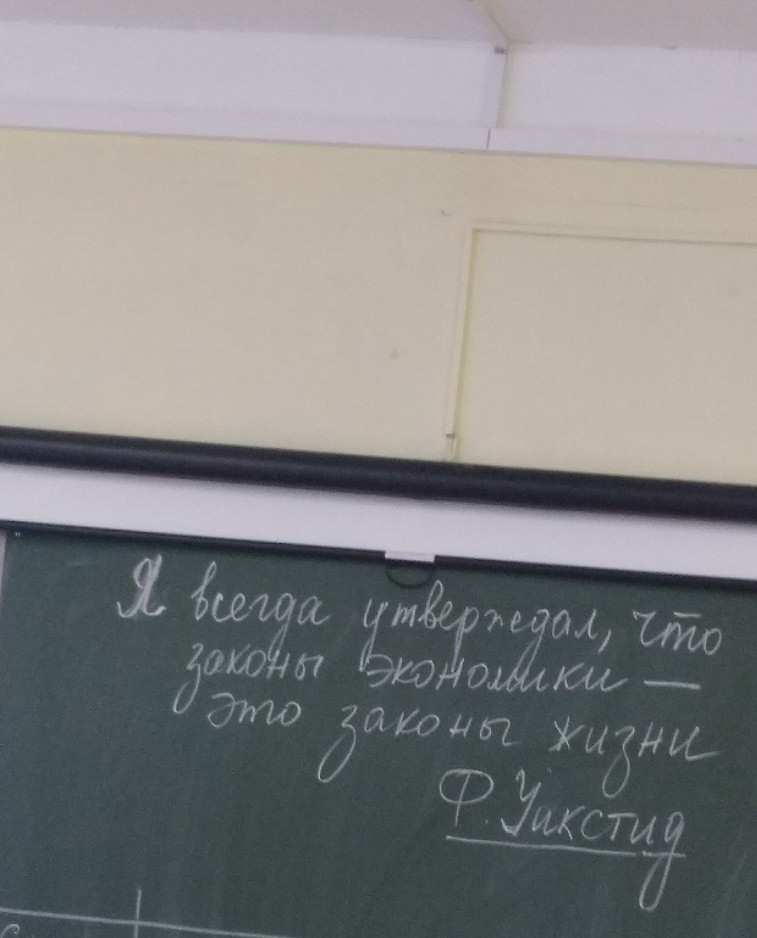 Я всегда утверждал, что
законы экономики —
это законы жизни
Ф. Уикстид